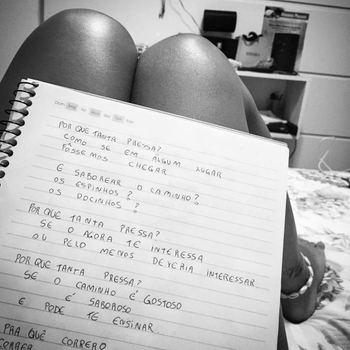 POR QUE TANTA PRESSA?
COMO SE EM ALGUM LUGAR
FÔSSEMOS CHEGAR
E SABOREAR O CAMINHO?
OS ESPINHOS?
OS DOCINHOS?
POR QUE TANTA PRESSA?
SE O AGORA TE INTERESSA
OU PELO MENOS DEVERIA INTERESSAR
POR QUE TANTA PRESSA?
SE O CAMINHO É GOSTOSO
É SABOROSO
E PODE TE ENSINAR...
PRA QUÊ CORRER?
CORRER